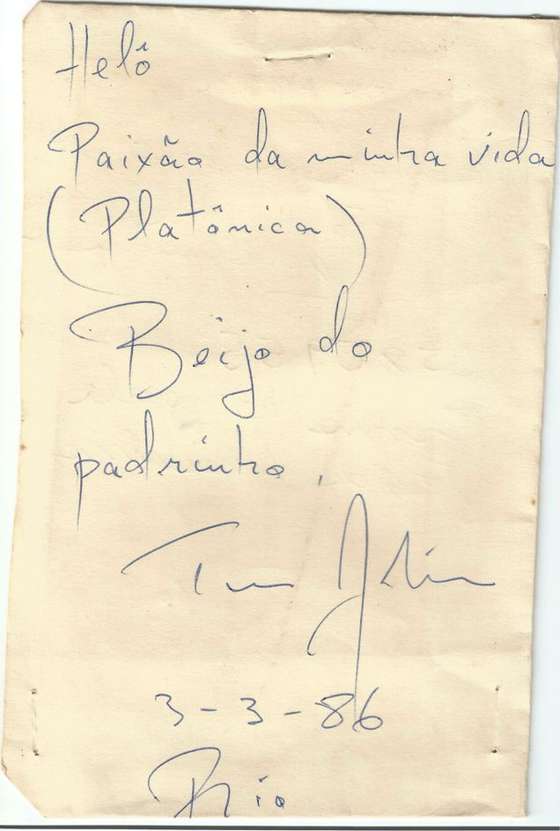 Helô
Paixão da minha vida
(Platônica)
Beijo do
padrinho,
Tom Jobim
3-3-86
Rio